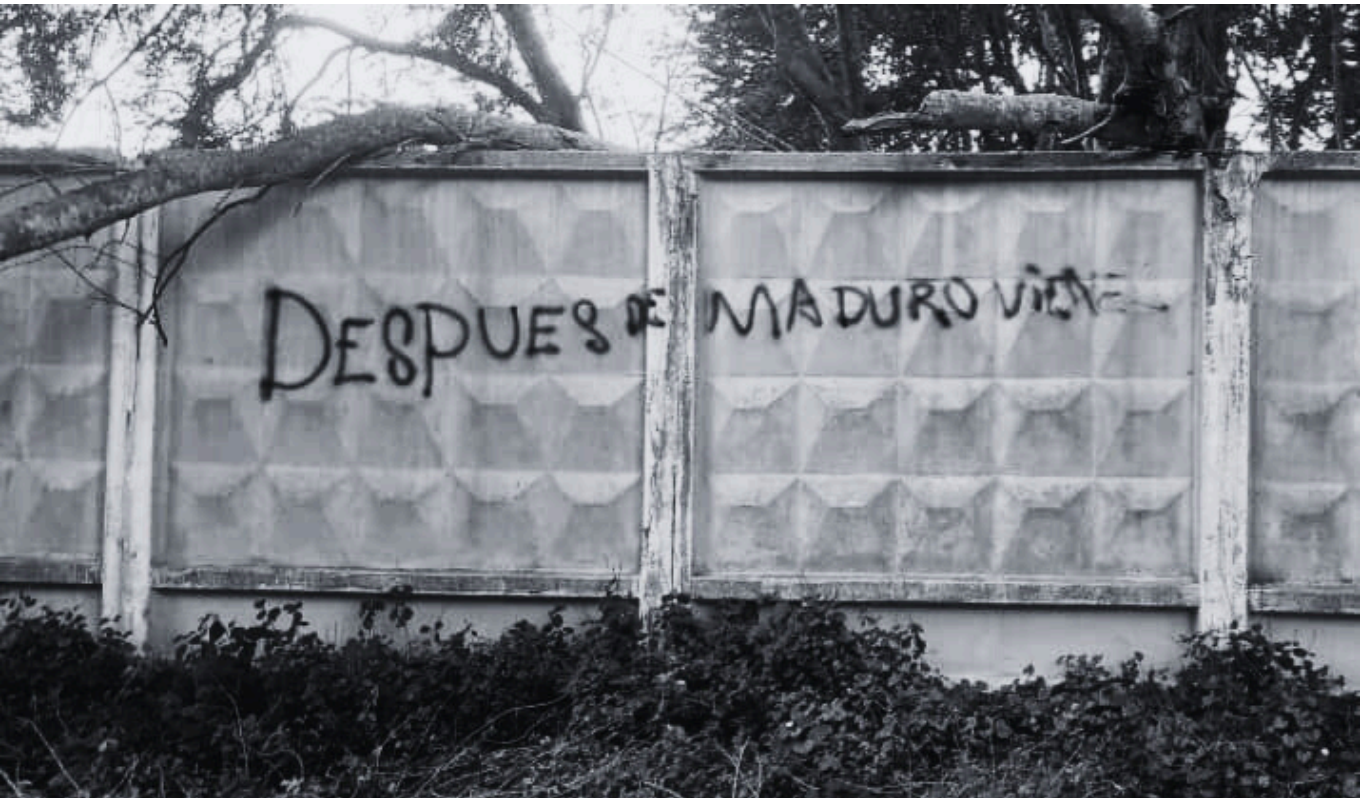 DESPUES DE MADURO VIENE